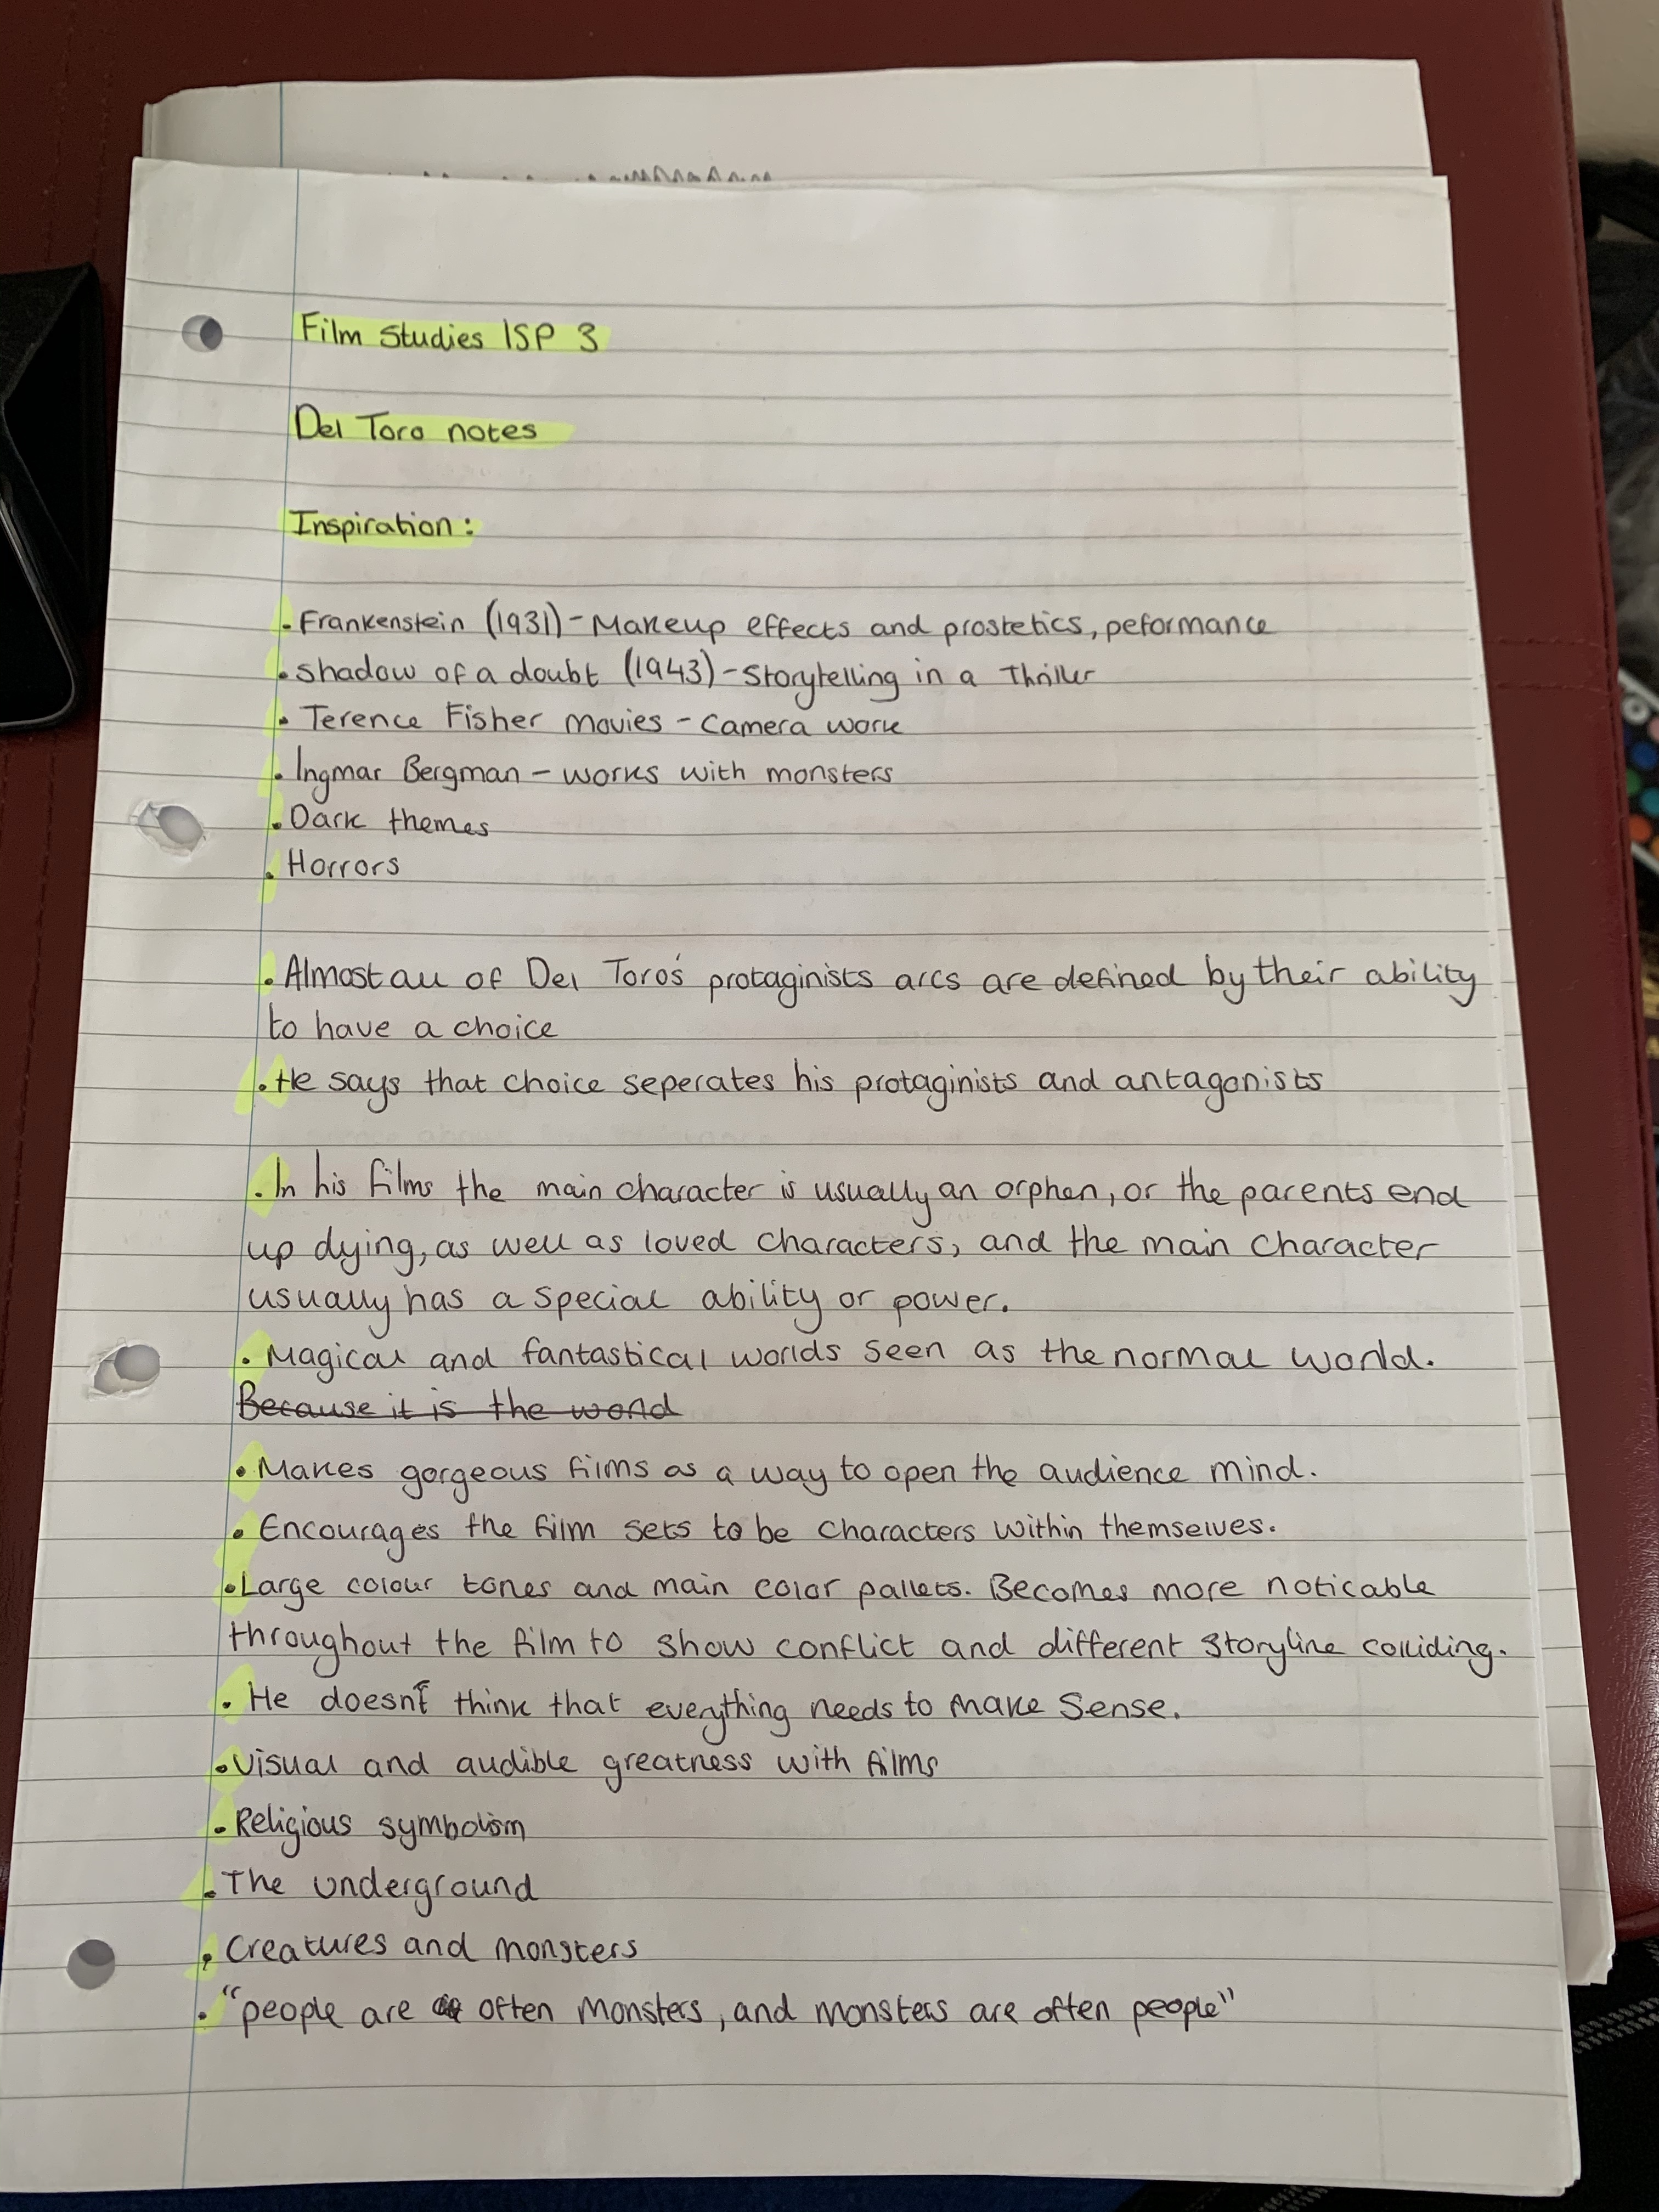 Film Studies ISP 3
Del Toro notes
Inspiration:
• Frankenstein (1931) - Makeup effects and prostetics, peformance
• Shadow of a doubt (1943) - Storytelling in a Thriller
• Terence Fisher movies - camera work
• Ingmar Bergman - works with monsters
• Dark themes
• Horrors
• Almost all of Del Toro's protaginists arcs are defined by their ability
to have a choice
• He says that choice seperates his protaginists and antagonists
• In his films the main character is usually an orphen, or the parents end
up dying, as well as loved characters, and the main character
usually has a special ability or power.
• Magical and fantastical worlds seen as the normal world.
Because it is the world
• Makes gorgeous films as a way to open the audience mind.
• Encourages the film sets to be characters within themselves.
• Large colour tones and main color pallets. Becomes more noticable
throughout the film to show conflict and different storyline colliding.
• He doesn't think that everything needs to make sense.
• Visual and audible greatness with films
• Religious symbolism
• The underground
• Creatures and monsters
• "people are often monsters, and monsters are often people"